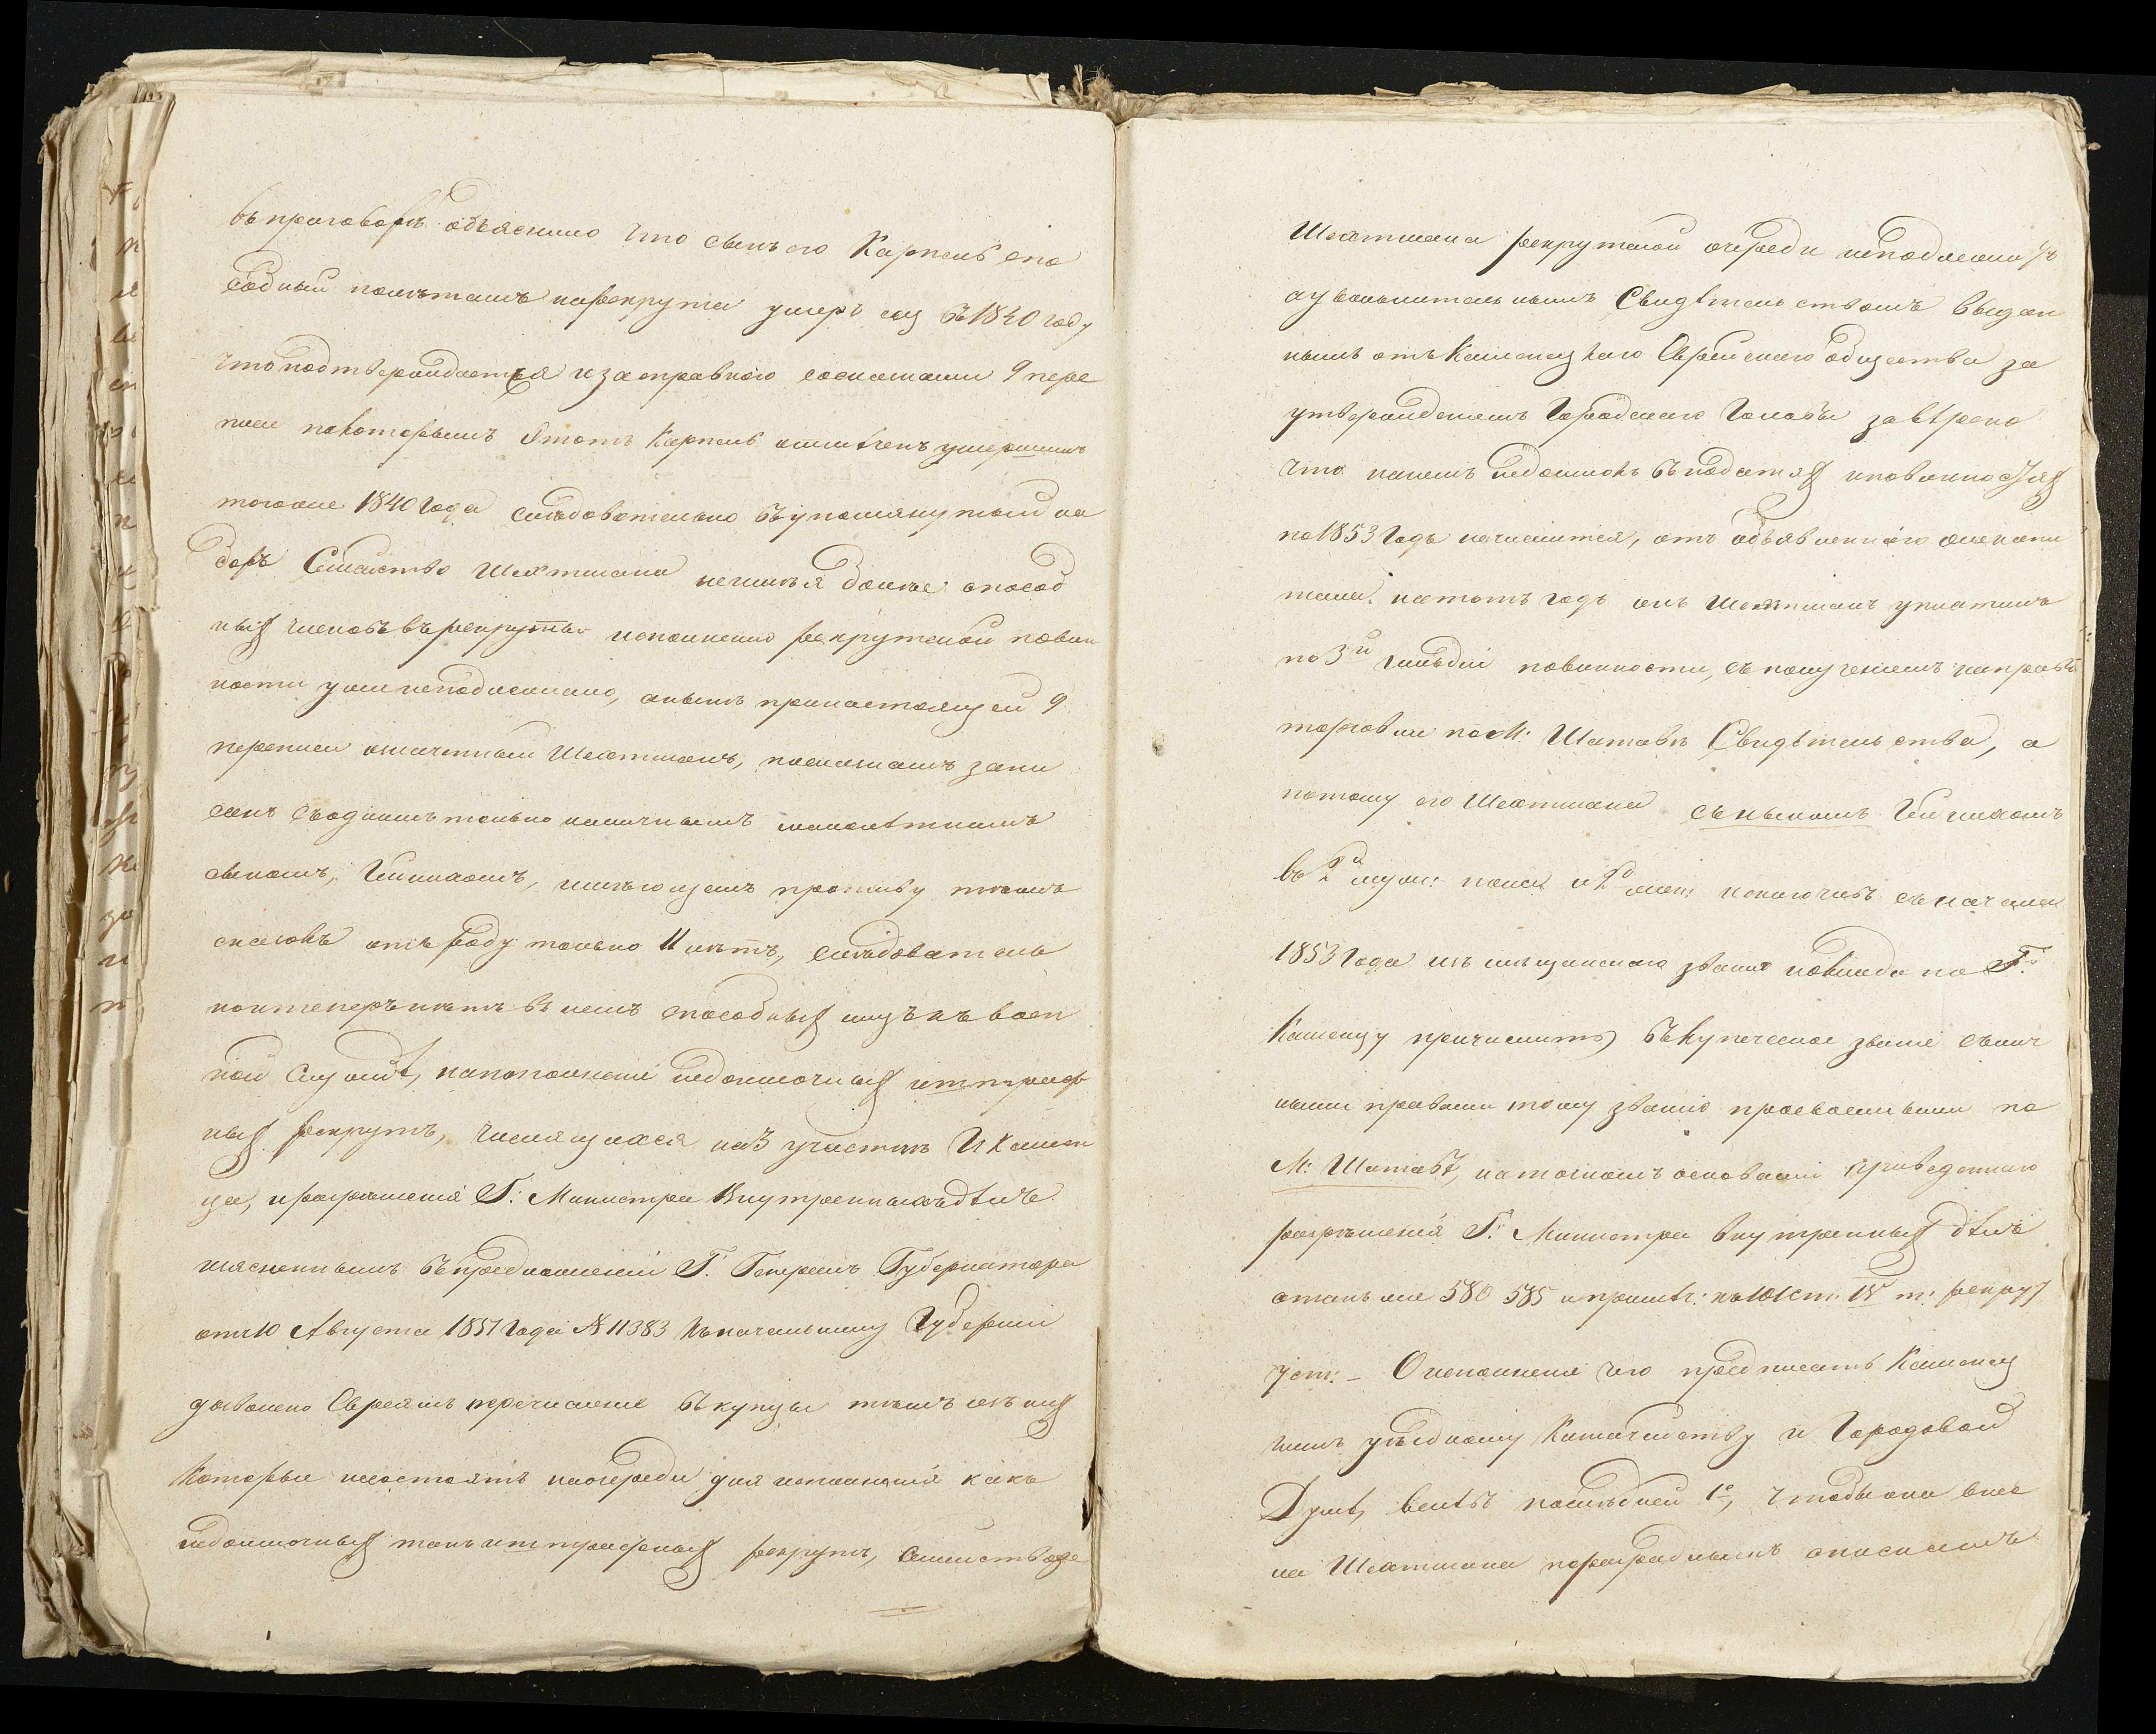 въ приговорѣ объяснило что сынъ его Карпель спо
собный полѣтамъ нарекрута умеръ еще въ 1840 году
что подтверждается изаправкою соспискам 9 пере
писи по которымъ этотъ Карпель отмѣченъ умершимъ
тогоже 1840 года слѣдовательно въ упомянутый на
боръ Семейство Шехтмана неимѣя болѣе способ
ныхъ членовъ въ рекруты исполненію рекрутской повин
ности уже неподлежало, а нынѣ при настоящей 9
переписи означенный Шехтманъ, поспискамъ запи
санъ съоднимъ только наличнымъ малолѣтнимъ
сыномъ, имѣющемъ противу тѣхъ
сказокъ отъ роду только 11 лѣтъ, слѣдователь
но итеперь нѣтъ въ немъ способныхъ лицъ къ воен
ной службѣ, напополненіе недоимочныхъ и штраф
ныхъ рекрутъ, числящихся на 3 участкѣ Г. Камен
ца, и разрѣшенія Г: Министра Внутреннихъ дѣлъ
изъясненнымъ въ предложеніи Г. Генералъ Губернатора
отъ 10 Августа 1851 года № 11383 къ начальнику Губерніи
дозволено Евреямъ перечисленіе въ купцы тѣмъ изъ нихъ
которые несостоятъ наочереди для исполненія какъ
недоимочныхъ такъ и штрафныхъ рекрутъ, Семейство же
Шехтмана рекрутской очереди неподлежитъ
а увольнительнымъ Свидѣтельствомъ выдан
нымъ отъ Каменецкаго Еврейскаго общества за
утвержденіемъ Городскаго Головы завѣрено
что нанемъ недоимокъ въ податяхъ и повинностяхъ
по 1853 годъ нечислится, отъ объявленнаго же капи
тала натотъ годъ онъ Шехтманъ уплатилъ
по 3й гильдіи повинности, съ полученіемъ на право
торговли по М: Шатавѣ Свидѣтельства, а
потому его Шехтмана съ сыномъ
въ 2й муж: пола и 2й жен: исключивъ съ начала
1853 года изъ мѣщанскаго званія и оклада по Г:
Каменцу причислить въ купеческое званіе съ лич
ными правами тому званію присвоенными по
М: Шатавѣ, на точномъ основаніи приведеннаго
разрѣшенія Г: Министра внутреннихъ дѣлъ
статьи 580 585 и примѣч: къ 101 ст: IV т: рекрут
уст: – О исполненіи чего предписать Каменец
кимъ уѣздному Казначейству и Городовой
Думѣ, велѣвъ послѣдней 1е, чтобы она внес
ла Шехтмана по разряднымъ спискамъ